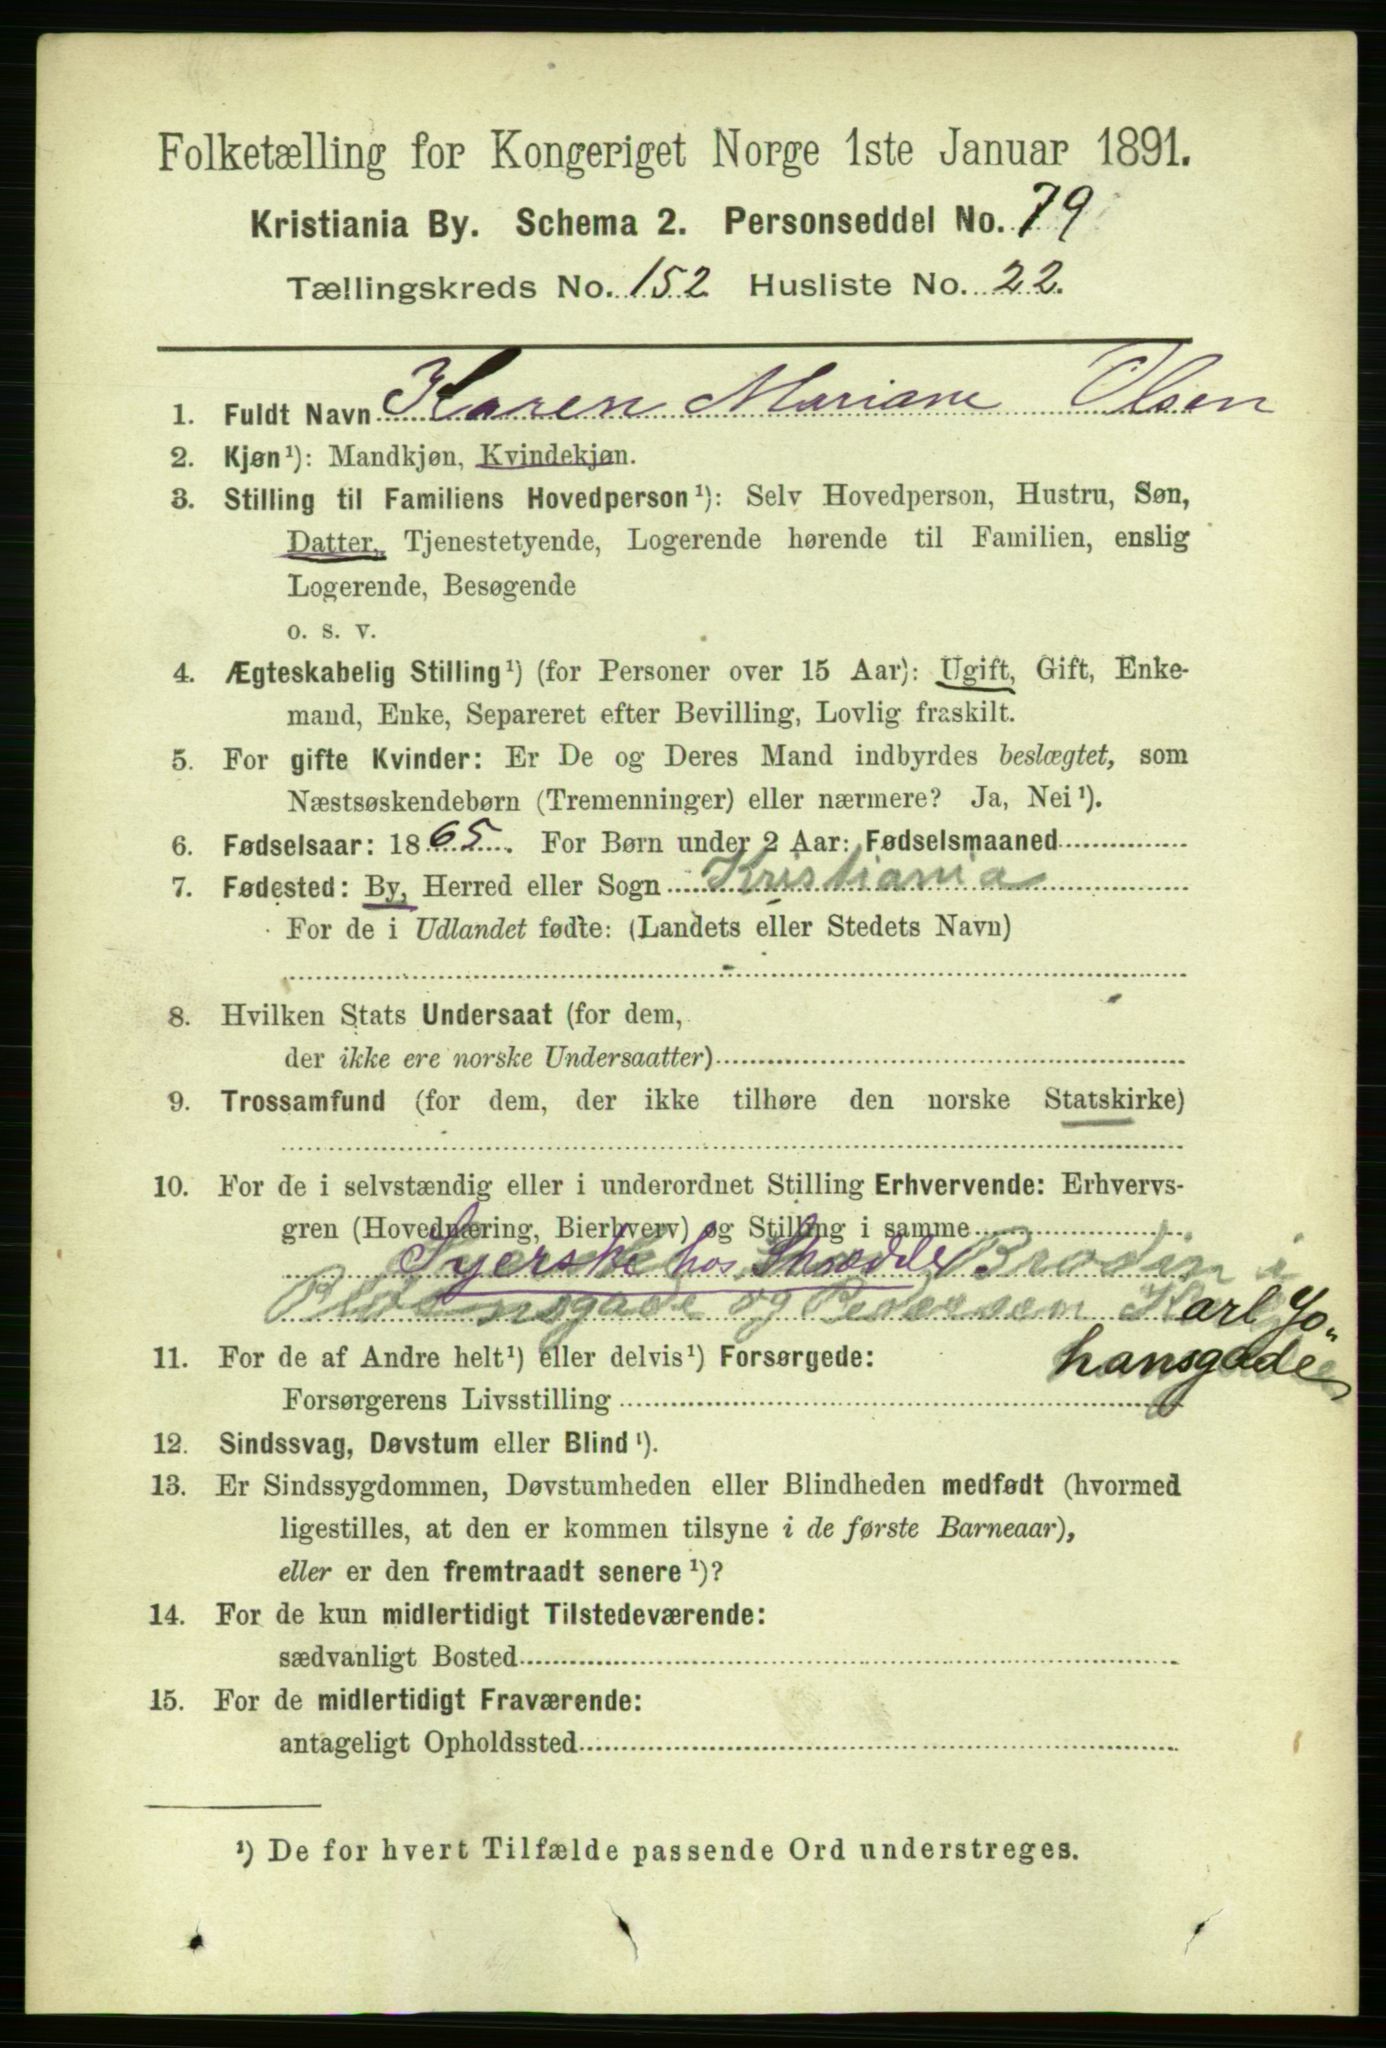 Folketælling for Kongeriget Norge 1ste Januar 1891.
Kristiania By. Schema 2. Personseddel No. 79
Tællingskreds No. 152 Husliste No. 22.
1. Fuldt Navn Karen Mariane Olsen
2. Kjøn¹): Mandkjøn, Kvindekjøn.
3. Stilling til Familiens Hovedperson¹): Selv Hovedperson, Hustru, Søn,
Datter, Tjenestetyende, Logerende hørende til Familien, enslig
Logerende, Besøgende
o. s. v.
4. Ægteskabelig Stilling¹) (for Personer over 15 Aar): Ugift, Gift, Enke-
mand, Enke, Separeret efter Bevilling, Lovlig fraskilt.
5. For gifte Kvinder: Er De og Deres Mand indbyrdes beslægtet, som
Næstsøskendebørn (Tremenninger) eller nærmere? Ja, Nei¹).
6. Fødselsaar: 1865. For Børn under 2 Aar: Fødselsmaaned
7. Fødested: By, Herred eller Sogn Kristiania
For de i Udlandet fødte: (Landets eller Stedets Navn)
8. Hvilken Stats Undersaat (for dem,
der ikke ere norske Undersaatter)
9. Trossamfund (for dem, der ikke tilhøre den norske Statskirke)
10. For de i selvstændig eller i underordnet Stilling Erhvervende: Erhvervs-
gren (Hovednæring, Bierhverv) og Stilling i samme
Syerske hos Skrædder Brodin i
gade og Pedersen Karl Jo-
hansgade
11. For de af Andre helt¹) eller delvis¹) Forsørgede:
Forsørgerens Livsstilling
12. Sindssvag, Døvstum eller Blind¹).
13. Er Sindssygdommen, Døvstumheden eller Blindheden medfødt (hvormed
ligestilles, at den er kommen tilsyne i de første Barneaar),
eller er den fremtraadt senere¹)?
14. For de kun midlertidigt Tilstedeværende:
sædvanligt Bosted
15. For de midlertidigt Fraværende:
antageligt Opholdssted
¹) De for hvert Tilfælde passende Ord understreges.